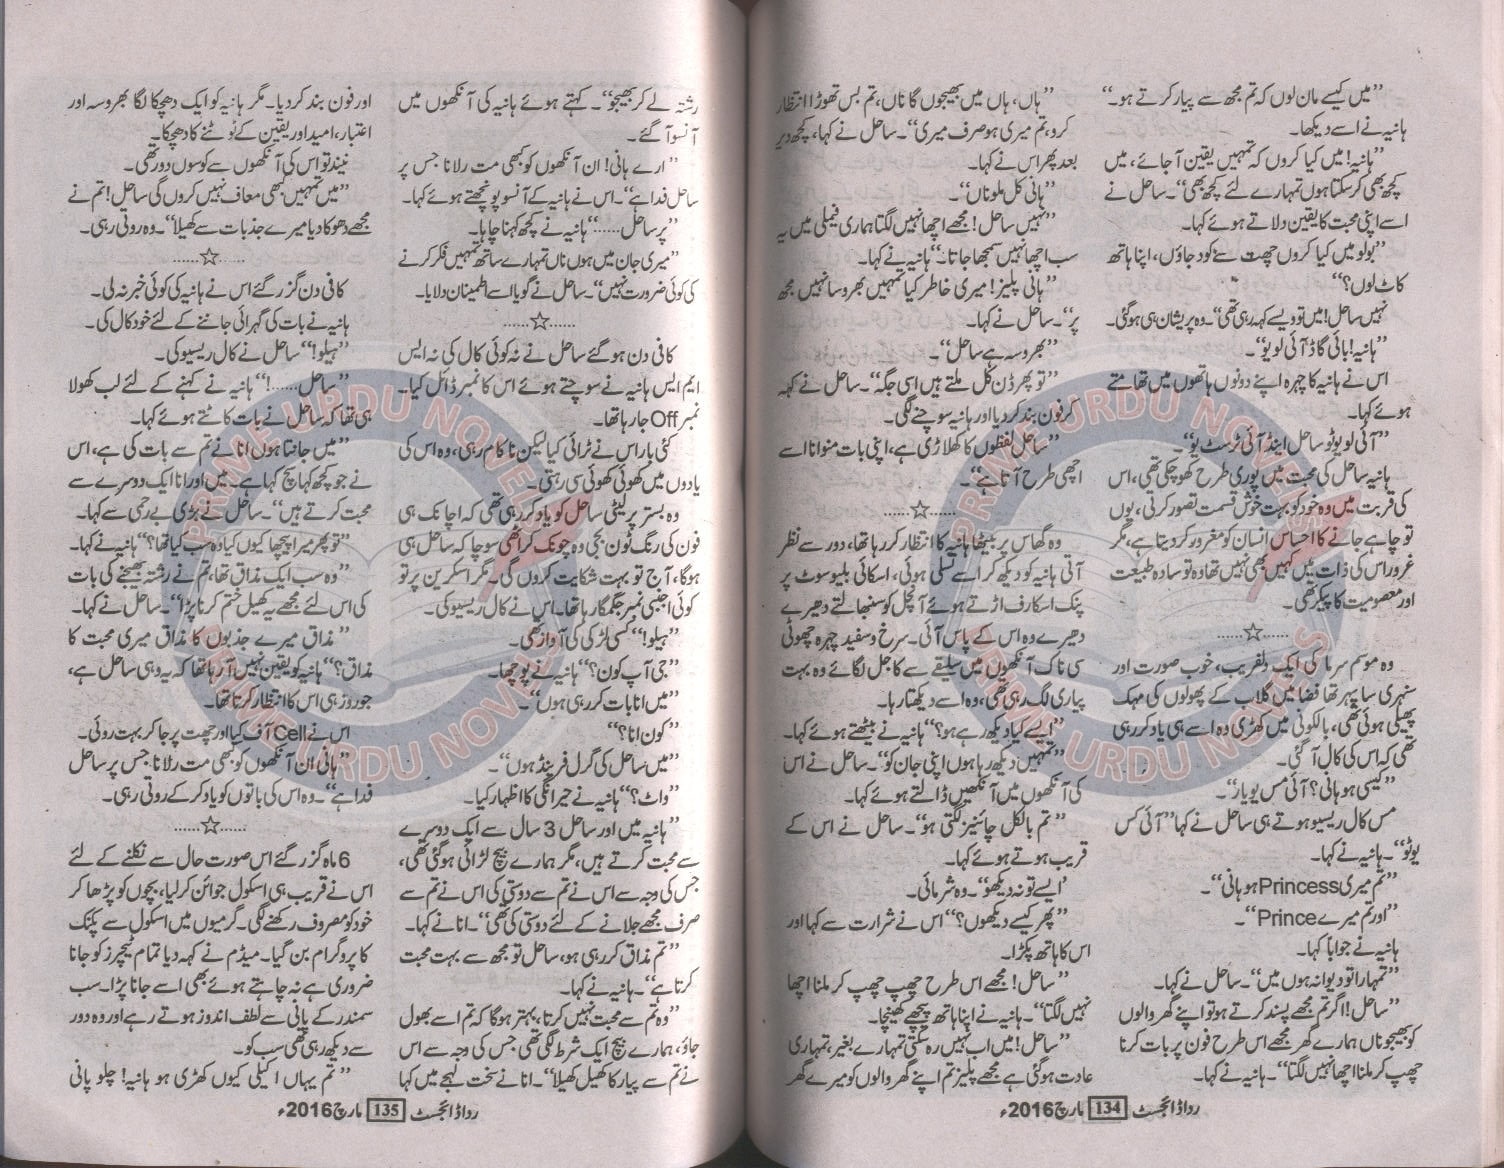 ”میں کیسے مان لوں کہ تم مجھ سے پیار کرتے ہو۔“
ہانیہ نے اسے دیکھا۔
”ہانیہ! میں کیا کروں کہ تمہیں یقین آجائے، میں
کچھ بھی کرسکتا ہوں تمہارے لئے کچھ بھی“۔ ساحل نے
اسے اپنی محبت کا یقین دلاتے ہوئے کہا۔
”بولو میں کیا کروں چھت سے کود جاؤں، اپنا ہاتھ
کاٹ لوں؟“
نہیں ساحل! میں تو ویسے کہہ رہی تھی“۔ وہ پریشان ہی ہوگئی۔
”ہانیہ! بائی گاڈ آئی لو یو“۔
اس نے ہانیہ کا چہرہ اپنے دونوں ہاتھوں میں تھامتے
ہوئے کہا۔
”آئی لو یو ٹو ساحل اینڈ آئی ٹرسٹ یو“۔
ہانیہ ساحل کی محبت میں پوری طرح کھوچکی تھی، اس
کی قربت میں وہ خود کو بہت خوش قسمت تصور کرتی، یوں
تو چاہے جانے کا احساس انسان کو مغرور کردیتا ہے، مگر
غرور اس کی ذات میں کہیں بھی نہیں تھا وہ تو سادہ طبیعت
اور معصومیت کا پیکر تھی۔
......☆......
وہ موسم سرما کی ایک دلفریب، خوب صورت اور
سنہری سا پہر تھا فضا میں گلاب کے پھولوں کی مہک
پھیلی ہوئی تھی، بالکونی میں کھڑی وہ اسے ہی یاد کررہی
تھی کہ اس کی کال آگئی۔
”کیسی ہو ہانی؟ آئی مس یو یار“۔
مس کال ریسیو ہوتے ہی ساحل نے کہا ”آئی مس
یو ٹو“۔ ہانیہ نے کہا۔
”تم میری Princess ہو ہانی“۔
”اور تم میرے Prince“۔
ہانیہ نے جوابا کہا۔
”تمہارا تو دیوانہ ہوں میں“۔ ساحل نے کہا۔
”ساحل! اگر تم مجھے پسند کرتے ہو تو اپنے گھر والوں
کو بھیجوناں ہمارے گھر مجھے اس طرح فون پر بات کرنا
چھپ کر ملنا اچھا نہیں لگتا“۔ ہانیہ نے کہا۔
”ہاں، ہاں میں بھیجوں گا ناں، تم بس تھوڑا انتظار
کرو، تم میری ہو صرف میری“۔ ساحل نے کہا، کچھ دیر
بعد پھر اس نے کہا۔
”ہانی کل ملوناں“۔
”نہیں ساحل! مجھے اچھا نہیں لگتا ہماری فیملی میں یہ
سب اچھا نہیں سمجھا جاتا۔“ ہانیہ نے کہا۔
”ہانی پلیز! میری خاطر کیا تمہیں بھروسا نہیں مجھ
پر“۔ ساحل نے کہا۔
”بھروسہ ہے ساحل“۔
”تو پھر ڈن کل ملتے ہیں اسی جگہ“۔ ساحل نے کہہ
کر فون بند کردیا اور ہانیہ سوچنے لگی۔
”ساحل لفظوں کا کھلاڑی ہے، اپنی بات منوانا اسے
اچھی طرح آتا ہے“۔
......☆......
وہ گھاس پر بیٹھا ہانیہ کا انتظار کررہا تھا، دور سے نظر
آتی ہانیہ کو دیکھ کر اسے تسلی ہوئی، اسکائی بلیو سوٹ پر
پنک اسکارف اڑتے ہوئے آنچل کو سنبھالتے دھیرے
دھیرے وہ اس کے پاس آئی۔ سرخ وسفید چہرہ چھوٹی
سی ناک آنکھوں میں سلیقے سے کاجل لگائے وہ بہت
پیاری لگ رہی تھی، وہ اسے دیکھتا رہا۔
”ایسے کیا دیکھ رہے ہو؟“ ہانیہ نے بیٹھتے ہوئے کہا۔
”تمہیں دیکھ رہا ہوں اپنی جان کو“۔ ساحل نے اس
کی آنکھوں میں آنکھیں ڈالتے ہوئے کہا۔
”تم بالکل چائنیز لگتی ہو“۔ ساحل نے اس کے
قریب ہوتے ہوئے کہا۔
’ایسے تو نہ دیکھو“۔ وہ شرمائی۔
”پھر کیسے دیکھوں؟“ اس نے شرارت سے کہا اور
اس کا ہاتھ پکڑا۔
”ساحل! مجھے اس طرح چھپ چھپ کر ملنا اچھا
نہیں لگتا“۔ ہانیہ نے اپنا ہاتھ پیچھے کھینچا۔
”ساحل! میں اب نہیں رہ سکتی تمہارے بغیر، تمہاری
عادت ہوگئی ہے مجھے پلیز تم اپنے گھر والوں کو میرے گھر
رداڈائجسٹ 134 مارچ 2016ء
رشتہ لے کر بھیجو“۔ کہتے ہوئے ہانیہ کی آنکھوں میں
آنسو آگئے۔
”ارے ہانی! ان آنکھوں کو کبھی مت رلانا جس پر
ساحل فدا ہے“۔ اس نے ہانیہ کے آنسو پونچھتے ہوئے کہا۔
”پر ساحل......“ ہانیہ نے کچھ کہنا چاہا۔
”میری جان میں ہوں ناں تمہارے ساتھ تمہیں فکر کرنے
کی کوئی ضرورت نہیں“۔ ساحل نے گویا اسے اطمینان دلایا۔
......☆......
کافی دن ہوگئے ساحل نے نہ کوئی کال کی نہ ایس
ایم ایس ہانیہ نے سوچتے ہوئے اس کا نمبر ڈائل کیا۔
نمبر Off جارہا تھا۔
کئی بار اس نے ٹرائی کیا لیکن ناکام رہی، وہ اس کی
یادوں میں کھوئی کھوئی سی رہتی۔
وہ بستر پر لیٹی ساحل کو یاد کررہی تھی کہ اچانک ہی
فون کی رنگ ٹون بجی وہ چونک کر اٹھی سوچا کہ ساحل ہی
ہوگا، آج تو بہت شکایت کروں گی۔ مگر اسکرین پر تو
کوئی اجنبی نمبر جگمگا رہا تھا۔ اس نے کال ریسیو کی۔
”ہیلو!“ کسی لڑکی کی آواز تھی۔
”جی آپ کون؟“ ہانیہ نے پوچھا۔
”میں انا بات کررہی ہوں“۔
”کون انا؟“
”میں ساحل کی گرل فرینڈ ہوں“۔
”واٹ؟“ ہانیہ نے حیرانگی کا اظہار کیا۔
”ہانیہ میں اور ساحل 3 سال سے ایک دوسرے
سے محبت کرتے ہیں، مگر ہمارے بیچ لڑائی ہوگئی تھی،
جس کی وجہ سے اس نے تم سے دوستی کی اس نے تم سے
صرف مجھے جلانے کے لئے دوستی کی تھی“۔ انا نے کہا۔
”تم مذاق کررہی ہو، ساحل تو مجھ سے بہت محبت
کرتا ہے“۔ ہانیہ نے کہا۔
”وہ تم سے محبت نہیں کرتا، بہتر ہوگا کہ تم اسے بھول
جاؤ، ہمارے بیچ ایک شرط لگی تھی جس کی وجہ سے اس
نے تم سے پیار کا کھیل کھیلا“۔ انا نے سخت لہجے میں کہا
اور فون بند کردیا۔ مگر ہانیہ کو ایک دھچکا لگا بھروسہ اور
اعتبار، امید اور یقین کے ٹوٹنے کا دھچکا۔
نیند تو اس کی آنکھوں سے کوسوں دور تھی۔
”میں تمہیں کبھی معاف نہیں کروں گی ساحل! تم نے
مجھے دھوکا دیا میرے جذبات سے کھیلا“۔ وہ روتی رہی۔
......☆......
کافی دن گزر گئے اس نے ہانیہ کی کوئی خبر نہ لی۔
ہانیہ نے بات کی گہرائی جاننے کے لئے خود کال کی۔
”ہیلو!“ ساحل نے کال ریسیو کی۔
”ساحل......!“ ہانیہ نے کہنے کے لئے لب کھولا
ہی تھا کہ ساحل نے بات کاٹتے ہوئے کہا۔
”میں جانتا ہوں انا نے تم سے بات کی ہے، اس
نے جو کچھ کہا سچ کہا ہے۔ میں اور انا ایک دوسرے سے
محبت کرتے ہیں“۔ ساحل نے بڑی بے رحمی سے کہا۔
”تو پھر میرا پیچھا کیوں کیا وہ سب کیا تھا؟“ ہانیہ نے کہا۔
”وہ سب ایک مذاق تھا، تم نے رشتہ بھیجنے کی بات
کی اس لئے مجھے یہ کھیل ختم کرنا پڑا“۔ ساحل نے کہا۔
”مذاق میرے جذبوں کا مذاق میری محبت کا
مذاق؟“ ہانیہ کو یقین نہیں آرہا تھا کہ یہ وہی ساحل ہے،
جو روز ہی اس کا انتظار کرتا تھا۔
اس نے Cell آف کیا اور چھت پر جا کر بہت روئی۔
”ہانی ان آنکھوں کو بھی مت رلانا جس پر ساحل
فدا ہے“۔ وہ اس کی باتوں کو یاد کرکے روتی رہی۔
......☆......
6 ماہ گزر گئے اس صورت حال سے نکلنے کے لئے
اس نے قریب ہی اسکول جوائن کرلیا، بچوں کو پڑھا کر
خود کو مصروف رکھنے لگی۔ گرمیوں میں اسکول سے پکنک
کا پروگرام بن گیا۔ میڈم نے کہہ دیا تمام ٹیچرز کو جانا
ضروری ہے نہ چاہتے ہوئے بھی اسے جانا پڑا۔ سب
سمندر کے پانی سے لطف اندوز ہوتے رہے اور وہ دور
سے دیکھ رہی تھی سب کو۔
”تم یہاں اکیلی کیوں کھڑی ہو ہانیہ! چلو پانی
رداڈائجسٹ 135 مارچ 2016ء
PRIME URDU NOVELS
PRIME URDU NOVELS
PRIME URDU NOVELS
PRIME URDU NOVELS